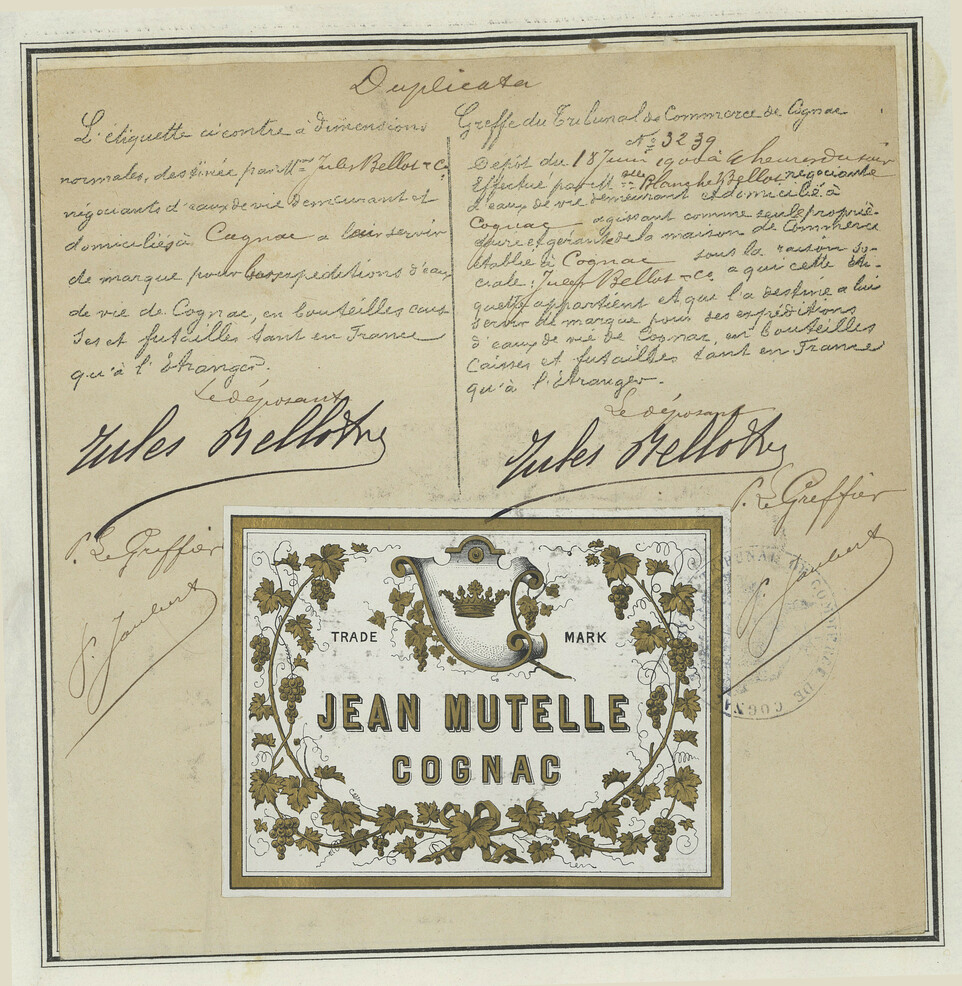 Duplicata
L'étiquette ci contre à dimensions
normales, destinée par Mme Jules Bellot & Co
négociants d'eaux de vie demeurant et
domiciliés à Cognac a leur servir
de marque pour leurs expéditions d'eau
de vie de Cognac, en bouteilles cais
ses et futailles tant en France
qu'à l'étranger.
Le déposant
Jules Bellot & Co
P. Le Greffier
P. Jaubert
Greffe du Tribunal de Commerce de Cognac
No 3239
Dépot du 18 Juin 1900 à 4 heures du soir
Effectué par Melle Blanche Bellot négociante
d'eaux de vie demeurant et domicilié à
Cognac agissant comme seule proprié-
taire et gérante de la maison de Commerce
établie à Cognac sous la raison so-
ciale: Jules Bellot & Co a qui cette éti-
quette appartient et que l'a destine a lui
servir de marque pour ses expéditions
d'eaux de vie de Cognac, en bouteilles
caisses et futailles tant en France
qu'à l'étranger.
Le déposant
Jules Bellot & Co
P. Le Greffier
P. Jaubert
TRIBUNAL DE COMMERCE DE COGNAC
TRADE MARK
JEAN MUTELLE
COGNAC